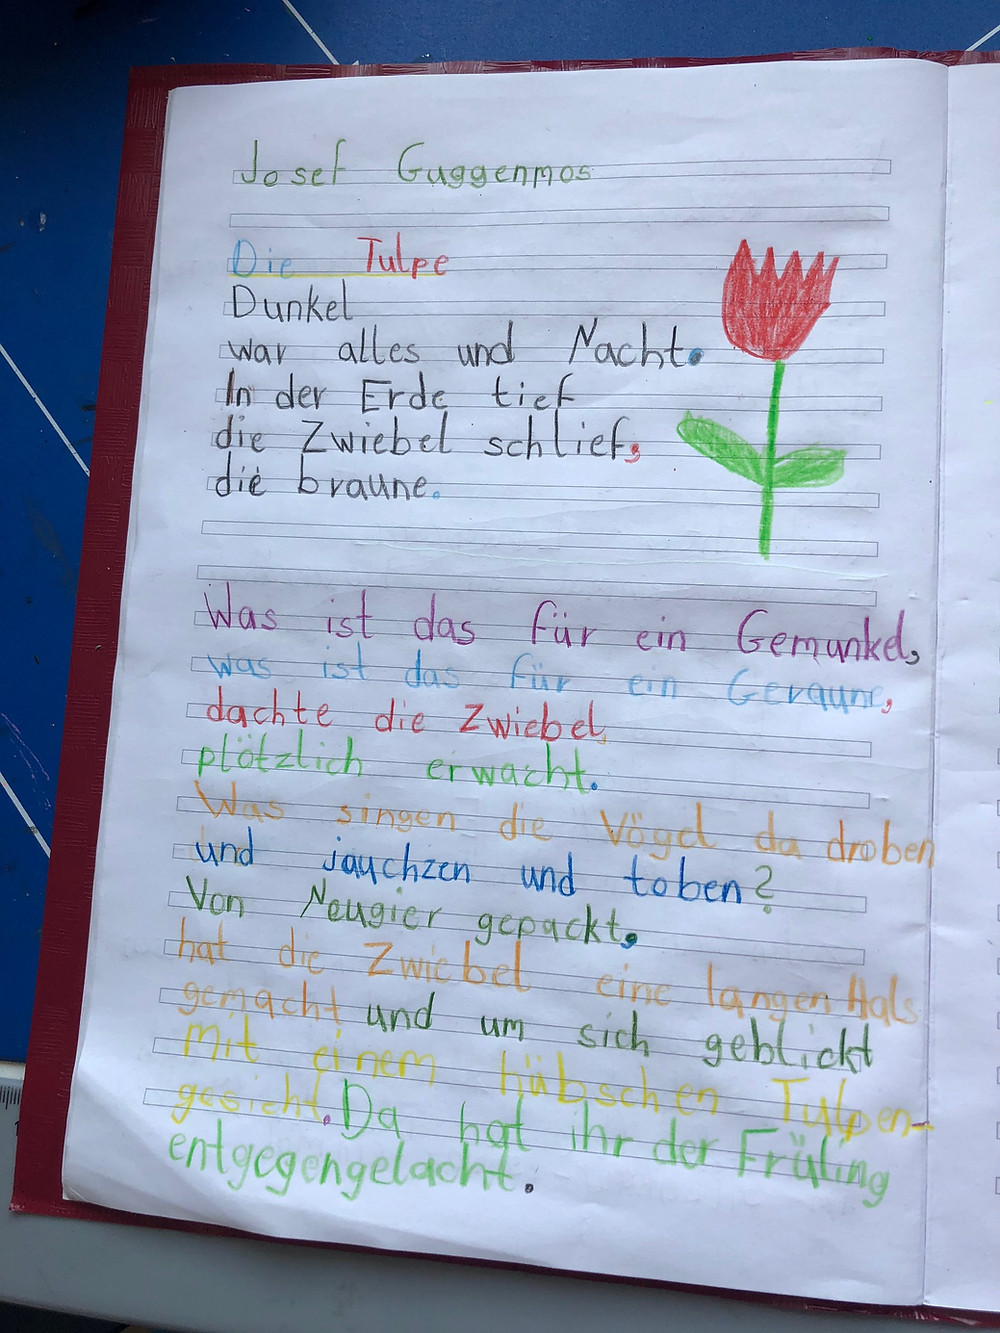 Josef Guggenmos
Die Tulpe
Dunkel
war alles und Nacht.
In der Erde tief
die Zwiebel schlief,
die braune.
Was ist das für ein Gemunkel,
was ist das für ein Geraune,
dachte die Zwiebel,
plötzlich erwacht.
Was singen die Vögel da droben
und jauchzen und toben?
Von Neugier gepackt,
hat die Zwiebel eine langen Hals
gemacht und um sich geblickt
mit einem hübschen Tulpen-
gesicht. Da hat ihr der Früling
entgegengelacht.